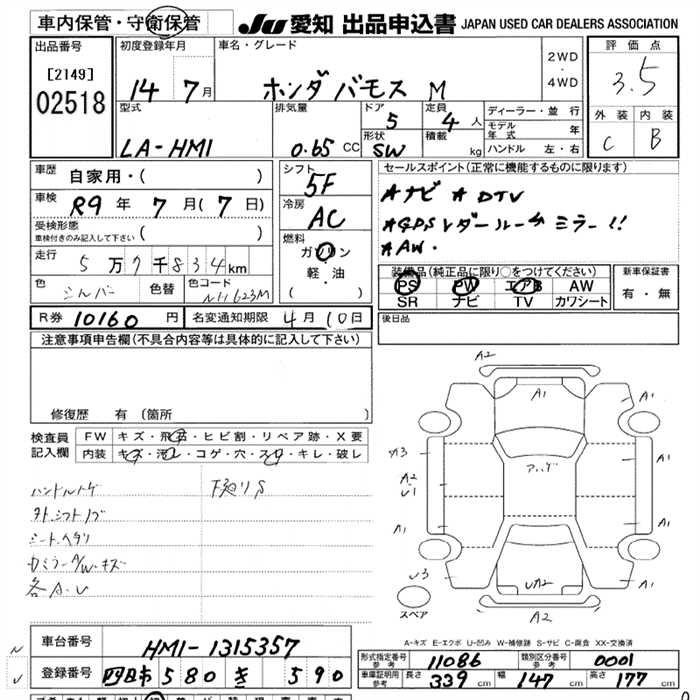 車内保管・守衛保管
JU 愛知 出品申込書 JAPAN USED CAR DEALERS ASSOCIATION
出品番号
[2149]
02518
初度登録年月
14 7月
車名・グレード
ホンダ バモス M
2WD
・
4WD
評価点
3.5
外装 内装
C B
型式
LA-HM1
排気量
0.65 CC
ドア
5
定員
4人
形状
SW
積載
kg
ディーラー・並行
モデル年式 年
ハンドル 左・右
車歴
自家用・( )
車検
R9年7月(7日)
受検形態
車検付きのみ記入して下さい ( )
走行
5万7千834km
色
シルバー
色替
色コード
NH623M
シフト
5F
冷房
AC
燃料
ガソリン
軽・油
( )
セールスポイント(正常に機能するものに限ります)
★ナビ ★DTV
★GPSレダールームミラー!!
★AW.
装備品(純正品に限り○をつけてください)
PS PW エアB AW
SR ナビ TV カワシート
新車保証書
有・無
R券 10160円
名変通知期限 4月10日
後日品
注意事項申告欄(不具合内容等は具体的に記入して下さい)
修復歴 有 (箇所
検査員
記入欄
FW キズ・飛石・ヒビ割・リペア跡・X要
内装 キズ・汚レ・コゲ・穴・スレ・キレ・破レ
ハンドルハゲ
下廻りS
シートヘタリ
カミラーA/W・キズ
各A.U
A2
A1
A1
A1
カ3
A2
U1
A1
A1
U3
UA2
A1
A2
スペア
A-キズ E-エクボ U-凹み W-補修跡 S-サビ C-腐食 XX-交換済
車台番号
HM1-1315357
登録番号
四日市 580 き 590
形式指定番号
参考
11086
類別区分番号
参考
0001
車庫証明用
参考
長さ 339 cm
幅 147 cm
高さ 177 cm